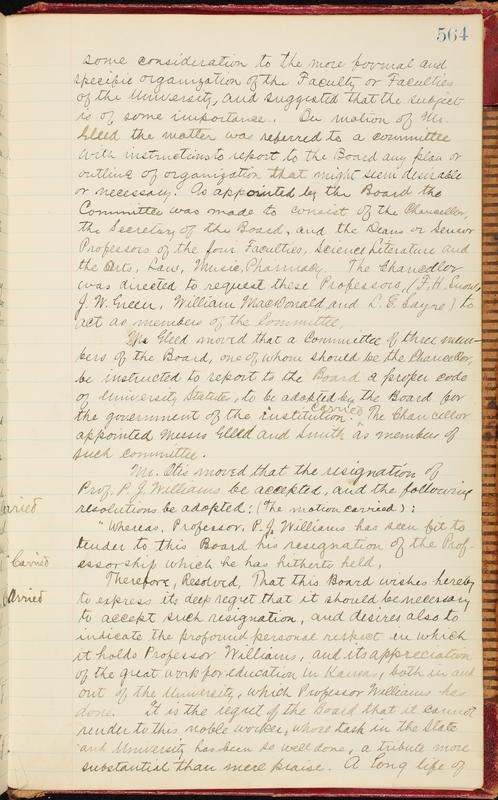 564
some consideration to the more formal and
specific organization of the Faculty or Faculties
of the University, and suggested that the subject
is of some importance. On motion of Mr.
Gleed the matter was referred to a committee
with instructions to report to the Board any plan or
outline of organization that might seem desirable
or necessary. As appointed by the Board the
Committee was made to consist of the Chancellor,
the Secretary of the Board, and the Deans or Senior
Professors of the four Faculties, Science Literature and
the Arts, Law, Music, Pharmacy. The Chancellor
was directed to request these Professors, (F. H. Snow,
J. W. Green, William MacDonald, and L. E. Sayre) to
act as members of the Committee.
Mr. Gleed moved that a Committee of three mem-
bers of the Board, one of whom should be the Chancellor,
be instructed to report to the Board a proper code
of University Statutes, to be adopted by the Board for
the government of the institution. Carried The Chancellor
appointed Messrs Gleed and Smith as members of
such committee.
Mr. Otis moved that the resignation of
Prof. P. J. Williams be accepted, and the following
arried
resolutions be adopted: (The motion carried):
"Whereas, Professor, P. J. Williams has seen fit to
tender to this Board his resignation of the Prof-
Carried
essorship which he has hitherto held,
Therefore, Resolved, That this Board wishes hereby
arried
to express its deep regret that it should be necessary
to accept such resignation, and desires also to
indicate the profound personal respect in which
it holds Professor Williams, and its appreciation
of the great work for education in Kansas, both in and
out of the University, which Professor Williams has
done. It is the regret of the Board that it cannot
render to this noble worker, whose task in the State
and University has been so well done, a tribute more
substantial than mere praise. A long life of